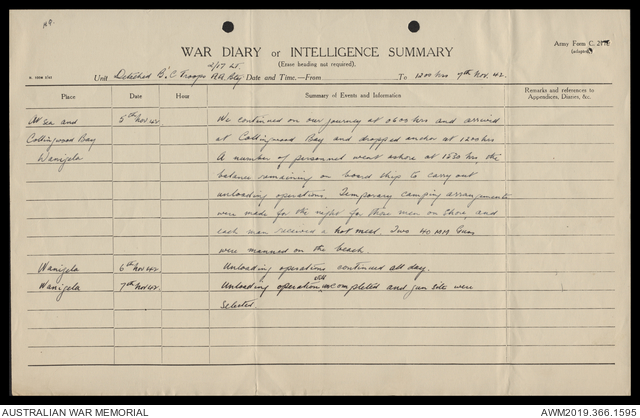 WAR DIARY OR INTELLIGENCE SUMMARY
Army Form C. 2118
(adapted)
(Erase heading not required).
2/17 Lt.
Unit Detached B & C Troops A.A. Bty Date and Time.—From To 1200 hrs 7th Nov. 42.
Place Date Hour Summary of Events and Information Remarks and references to Appendices, Diaries, &c.
At sea and 5th Nov. 42 We continued on our journey at 0600 hrs and arrived
Collingwood Bay at Collingwood Bay and dropped anchor at 1200 hrs
Wanigela A number of personnel went ashore at 1530 hrs the
balance remaining on board ship to carry out
unloading operations. Temporary camping arrangements
were made for the night for those men on shore, and
each man received a hot meal. Two 40 MM Guns
were manned on the beach.
Wanigela 6th Nov 42 Unloading operations continued all day.
Wanigela 7th Nov 42 Unloading operation completed and gun site were
selected
AUSTRALIAN WAR MEMORIAL AWM2019.366.1595